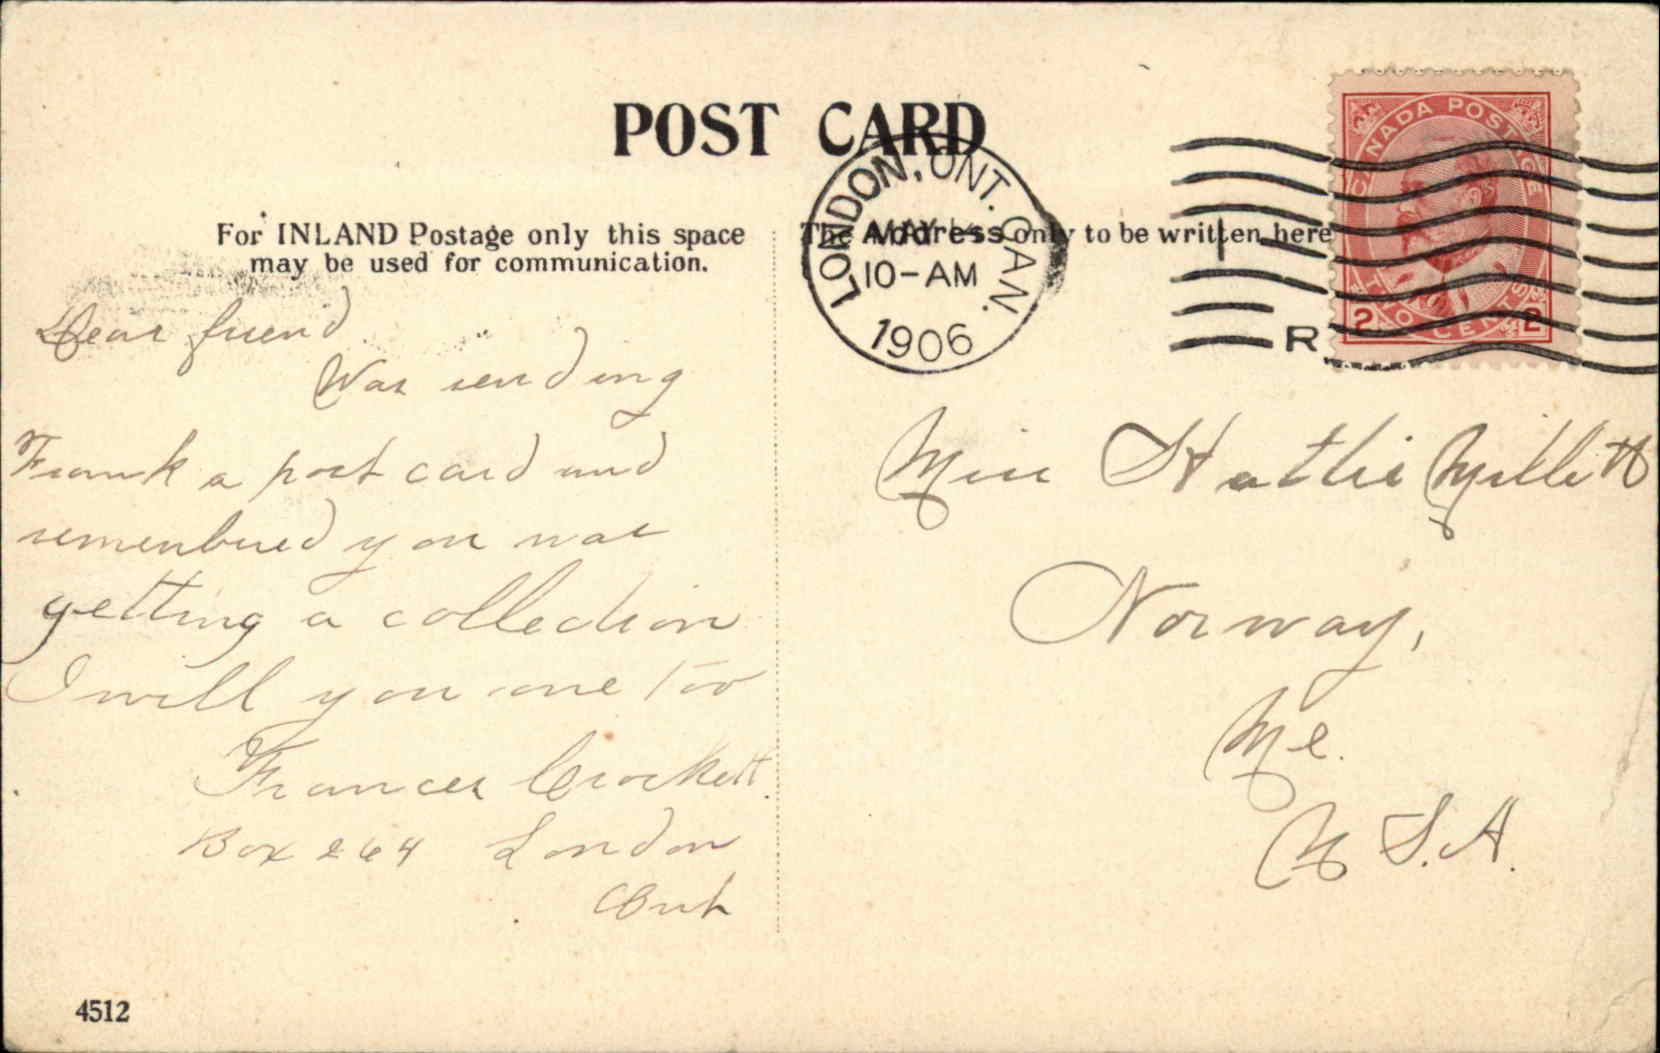 POST CARD
For INLAND Postage only this space
may be used for communication.
The Address only to be written here
LONDON, ONT. CAN.
MAY
10-AM
1906
R
CANADA POSTAGE
2 TWO CENTS 2
Dear friend
Was sending
Frank a post card and
remembered you was
getting a collection
I will you one too
Frances Crockett.
Box 264 London
Ont
Miss Hattie Millett
Norway,
Me.
U S.A.
4512